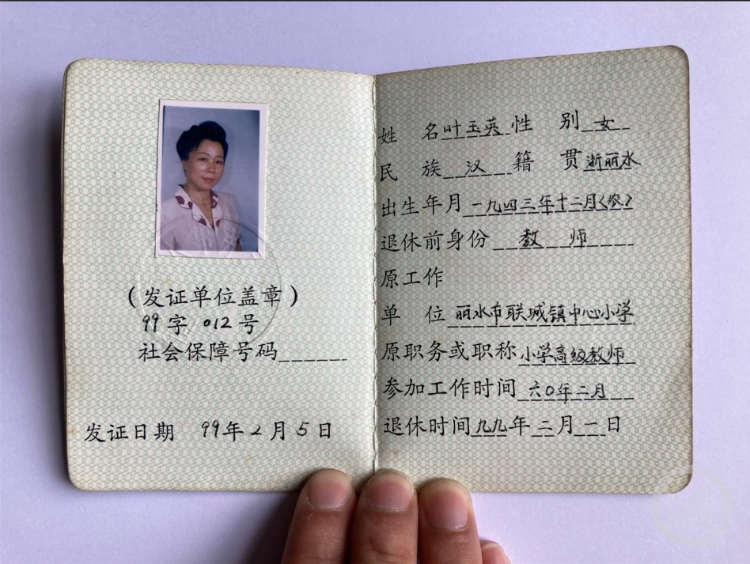 (发证单位盖章)
99字 012号
社会保障号码
发证日期 99年2月5日
姓 名 叶玉英 性 别 女
民 族 汉 籍 贯 浙丽水
出生年月 一九四三年十二月(农)
退休前身份 教 师
原工作
单 位 丽水市联城镇中心小学
原职务或职称 小学高级教师
参加工作时间 六0年二月
退休时间 九九年二月一日